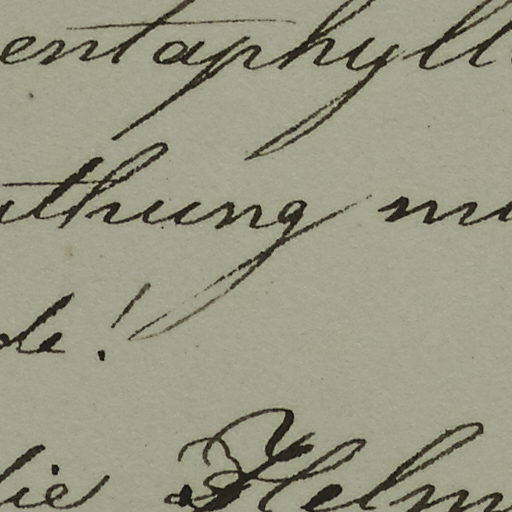 entaphyll
uthung mi
de!
die Helm